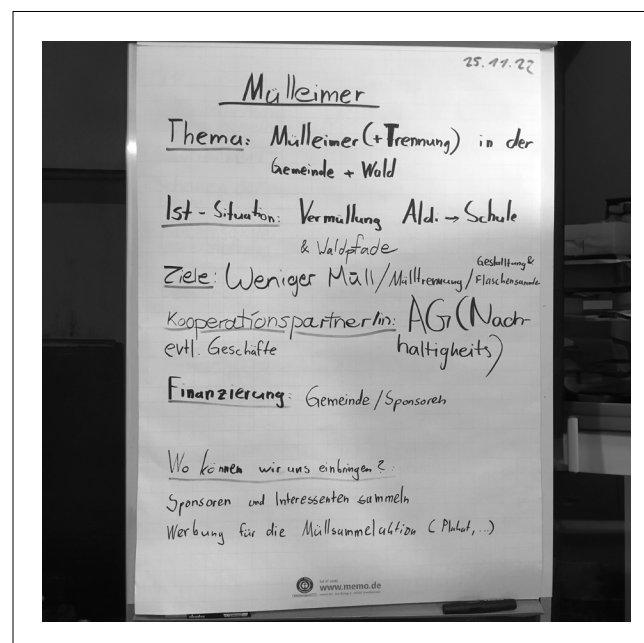 25.11.22
Mülleimer
Thema: Mülleimer (+Trennung) in der
Gemeinde + Wald
Ist-Situation: Vermüllung Aldi → Schule
& Waldpfade
Ziele: Weniger Müll/Mülltrennung/Gestaltung &
Flaschensammle
Kooperationspartner/in: AG (Nach-
evtl. Geschäfte haltigkeits)
Finanzierung: Gemeinde/Sponsoren
Wo können wir uns einbringen?:
Sponsoren und Interessenten sammeln
Werbung für die Müllsammelaktion (Plakat,...)
www.memo.de